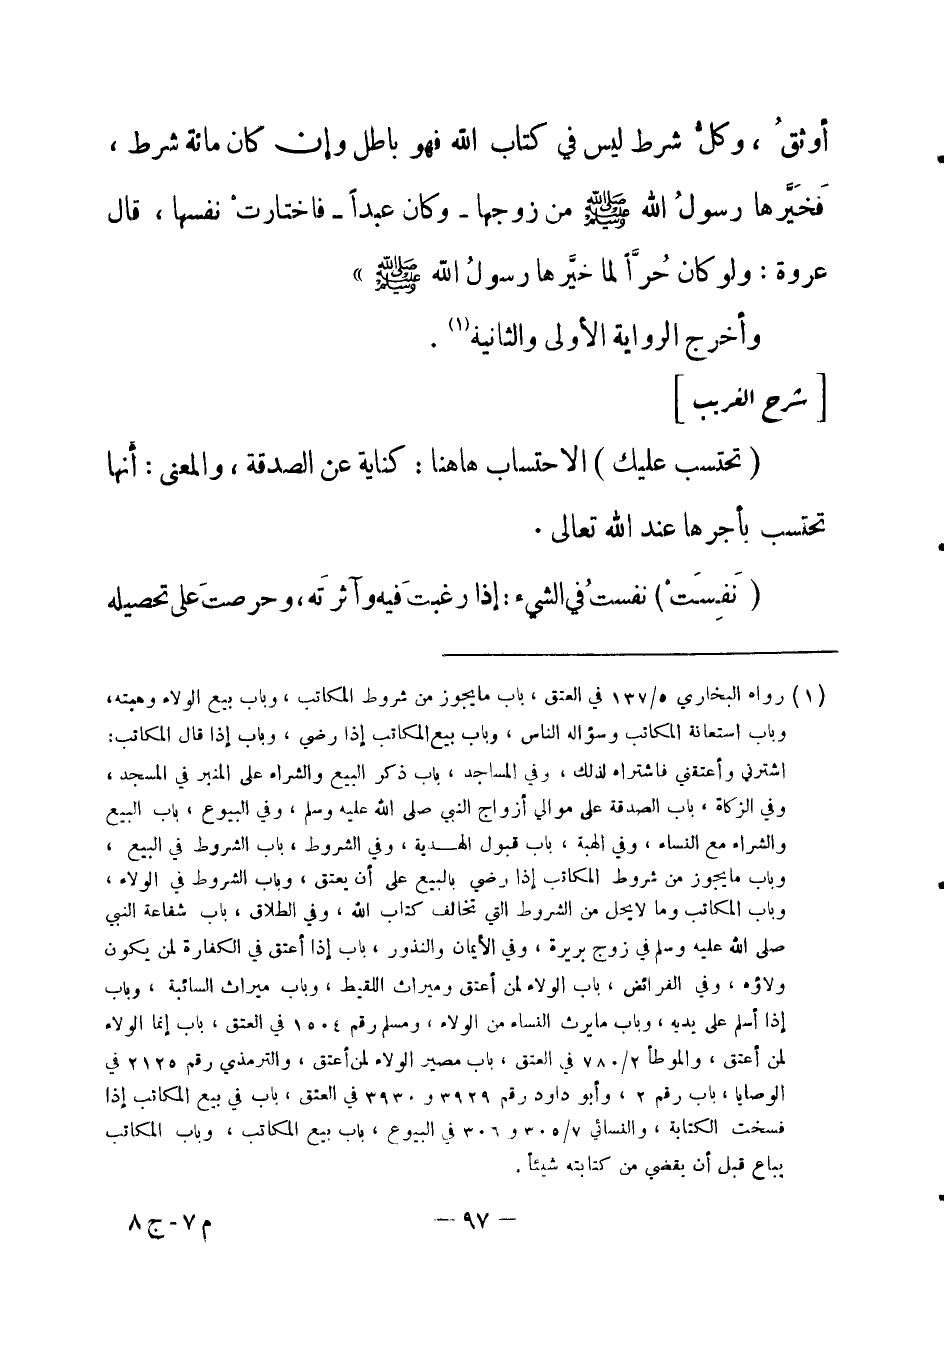 أوثقُ ، وكلُّ شرط ليس في كتاب الله فهو باطل وإن كان مائة شرط ،
فَخيَّرها رسولُ الله ﷺ من زوجها ـ وكان عبداً ـ فاختارتْ نفسها ، قال
عروة : ولو كان حُرَّاً لما خيَّرها رسولُ الله ﷺ »
وأخرج الرواية الأولى والثانية(١) .
[ شرح الغريب ]
( تحتسب عليك ) الاحتساب هاهنا : كناية عن الصدقة ، والمعنى : أنها
تحتسب بأجرها عند الله تعالى .
( نَفِسَتْ ) نفستُ في الشيء : إذا رغبتَ فيه وآثرتَه ، وحرصتَ على تحصيله
(١) رواه البخاري ١٣٧/٥ في العتق ، باب ما يجوز من شروط المكاتب ، وباب بيع الولاء وهبته ،
وباب استعانة المكاتب وسؤاله الناس ، وباب بيع المكاتب إذا رضي ، وباب إذا قال المكاتب :
اشترني وأعتقني فاشتراه لذلك ، وفي المساجد ، باب ذكر البيع والشراء على المنبر في المسجد ،
وفي الزكاة ، باب الصدقة على موالي أزواج النبي صلى الله عليه وسلم ، وفي البيوع ، باب البيع
والشراء مع النساء ، وفي الهبة ، باب قبول الهدية ، وفي الشروط ، باب الشروط في البيع ،
وباب ما يجوز من شروط المكاتب إذا رضي بالبيع على أن يعتق ، وباب الشروط في الولاء ،
وباب المكاتب وما لا يحل من الشروط التي تخالف كتاب الله ، وفي الطلاق ، باب شفاعة النبي
صلى الله عليه وسلم في زوج بريرة ، وفي الأيمان والنذور ، باب إذا أعتق في الكفارة لمن يكون
ولاؤه ، وفي الفرائض ، باب الولاء لمن أعتق وميراث اللقيط ، وباب ميراث السائبة ، وباب
إذا أسلم على يديه ، وباب ما يرث النساء من الولاء ، ومسلم رقم ١٥٠٤ في العتق ، باب إنما الولاء
لمن أعتق ، والموطأ ٧٨٠/٢ في العتق ، باب مصير الولاء لمن أعتق ، والترمذي رقم ٢١٢٥ في
الوصايا ، باب رقم ٢ ، وأبو داود رقم ٣٩٢٩ و ٣٩٣٠ في العتق ، باب في بيع المكاتب إذا
فسخت الكتابة ، والنسائي ٣٠٥/٧ و ٣٠٦ في البيوع ، باب بيع المكاتب ، وباب المكاتب
يباع قبل أن يقضي من كتابته شيئاً .
— ٩٧ —
م ٧ - ج ٨